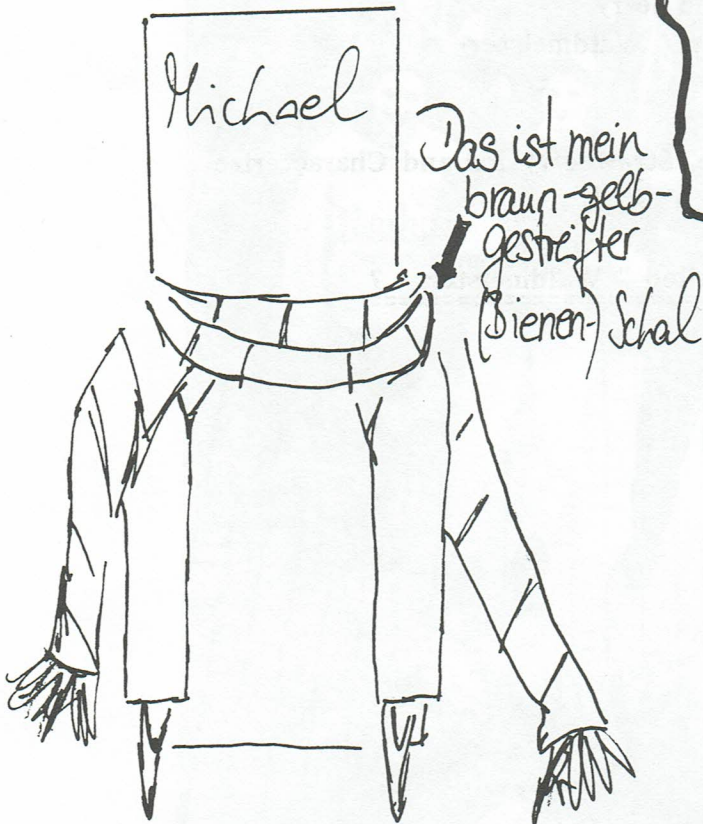 Michael
Das ist mein
braun-gelb-
gestreifter
(Bienen-) Schal